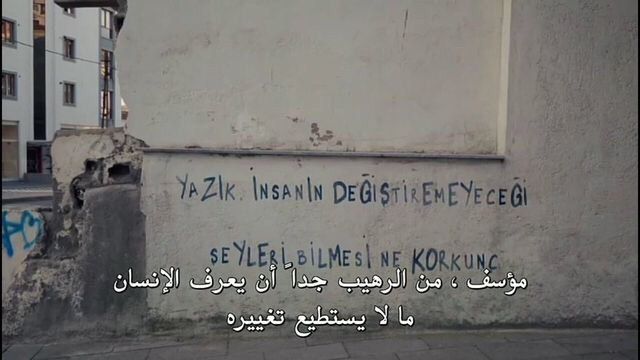 YAZIK. İNSANIN DEĞİŞTİREMEYECEĞİ
ŞEYLERİ BİLMESİ NE KORKUNÇ
مؤسف ، من الرهيب جداً أن يعرف الإنسان
ما لا يستطيع تغييره